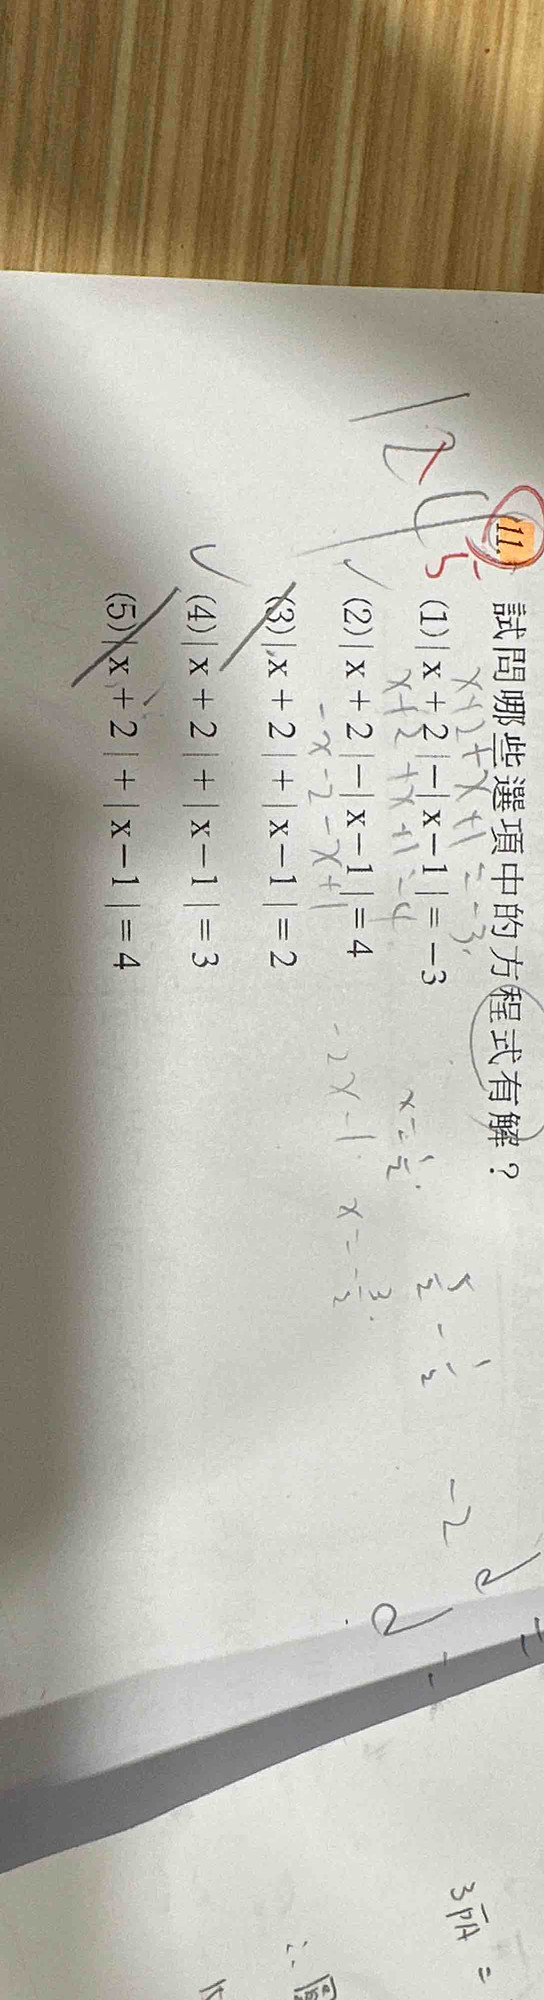 11. 試問哪些選項中的方程式有解？
x+2+x+1=-3
(1)|x+2|-|x-1|=-3
x+2+x+1=4
x=1/2
(2)|x+2|-|x-1|=4
-x-2-x+1
-2x-1
x=-3/2
(3)|x+2|+|x-1|=2
(4)|x+2|+|x-1|=3
(5)|x+2|+|x-1|=4
-2
3PA=